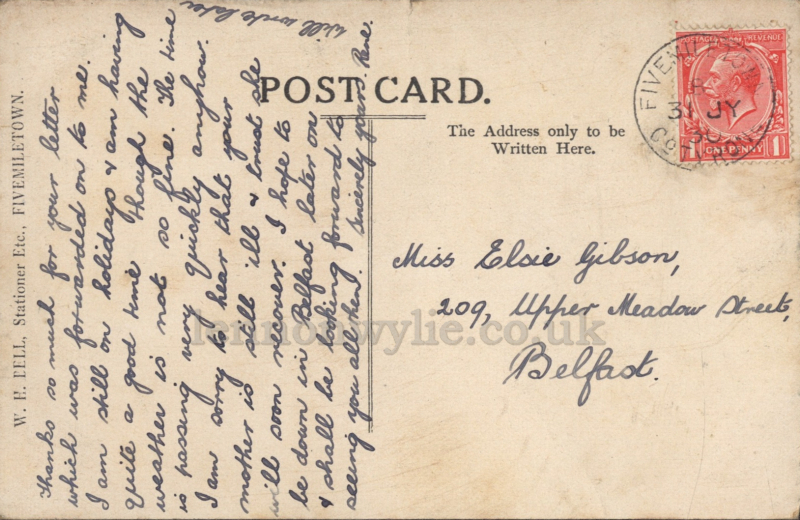 POST CARD.
The Address only to be
Written Here.
W. E. BELL, Stationer Etc., FIVEMILETOWN.
Thanks so much for your letter
which was forwarded on to me.
I am still on holidays & am having
quite a good time though the
weather is not so fine. The time
is passing very quickly anyhow.
I am sorry to hear that your
mother is still ill & trust she
will soon recover. I hope to
be down in Belfast later on
& shall be looking forward to
seeing you all then. Sincerely yours
will write later
Miss Elsie Gibson,
209, Upper Meadow Street,
Belfast.
POSTAGE REVENUE
ONE PENNY
1 1
FIVEMILETOWN
31 JY
lennonwylie.co.uk